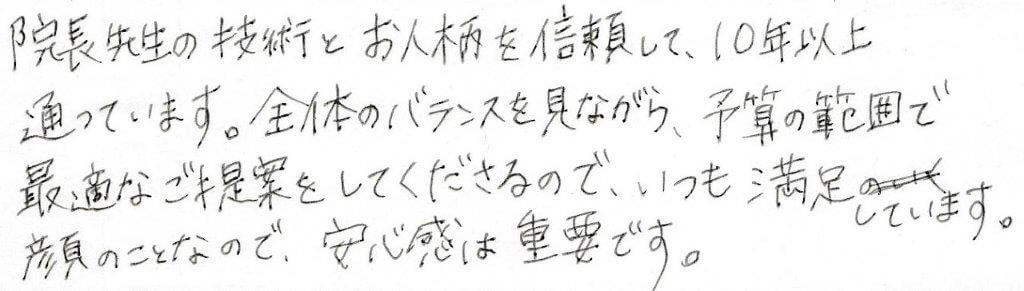 院長先生の技術とお人柄を信頼して、10年以上
通っています。全体のバランスを見ながら、予算の範囲で
最適なご提案をしてくださるので、いつも満足しています。
顔のことなので、安心感は重要です。